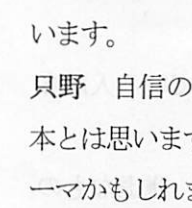 います。
只野　自信の
本とは思いま
ーマかもしれ